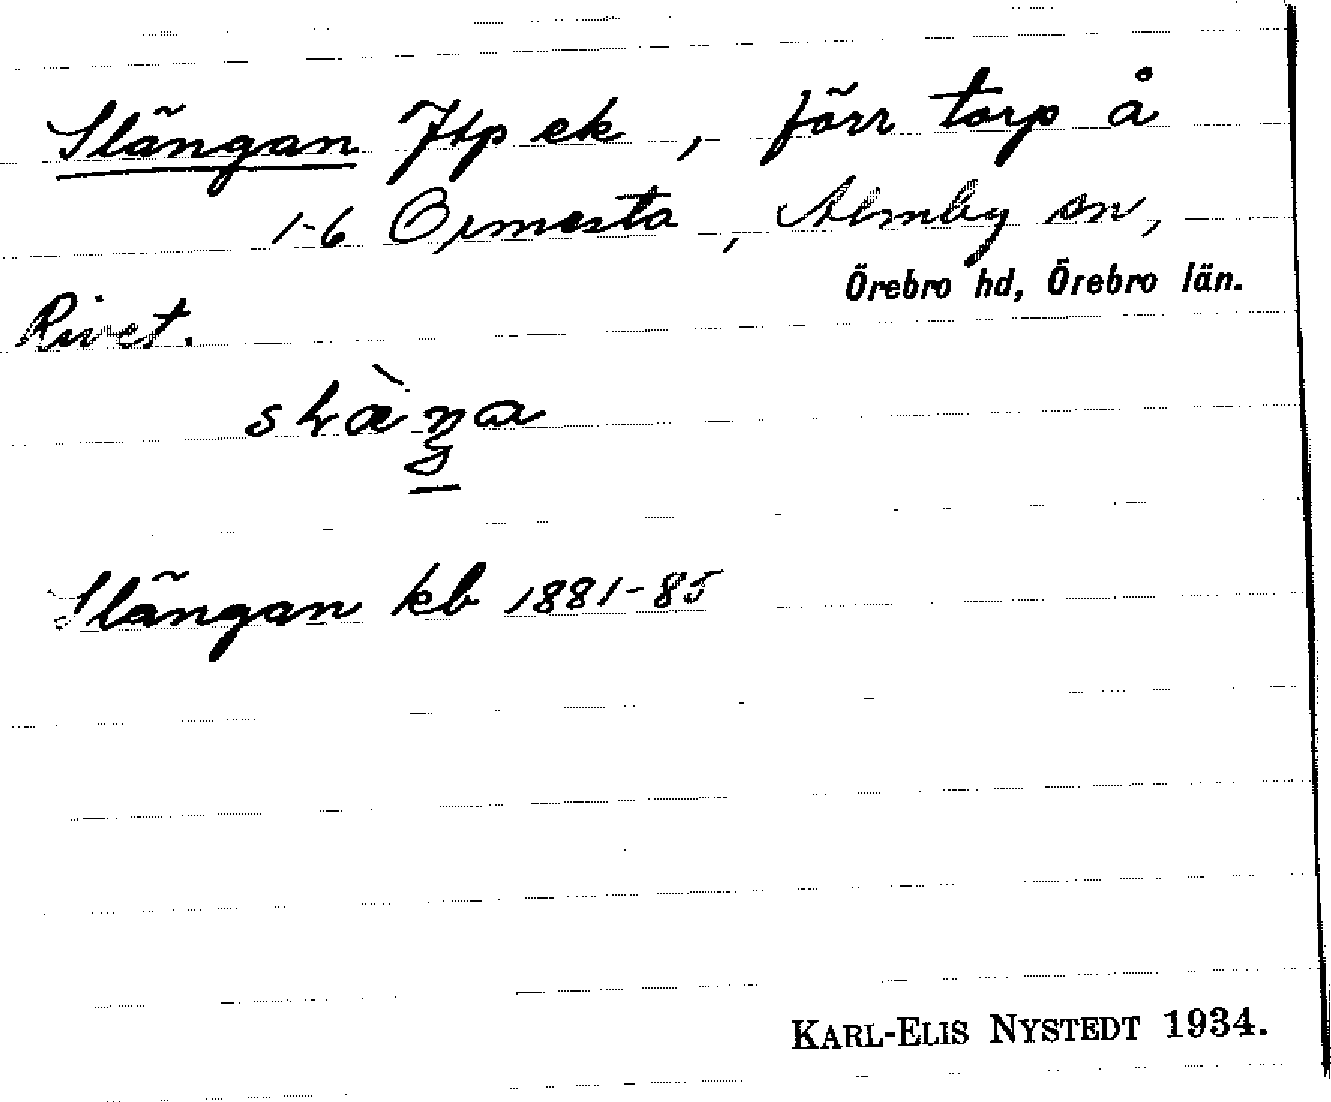 Slängan Jtp ek, förr torp å
1-6 Ormesta, Almby sn,
Örebro hd, Örebro län.
Rivet.
Slängan kb 1881-85
KARL-ELIS NYSTEDT 1934.